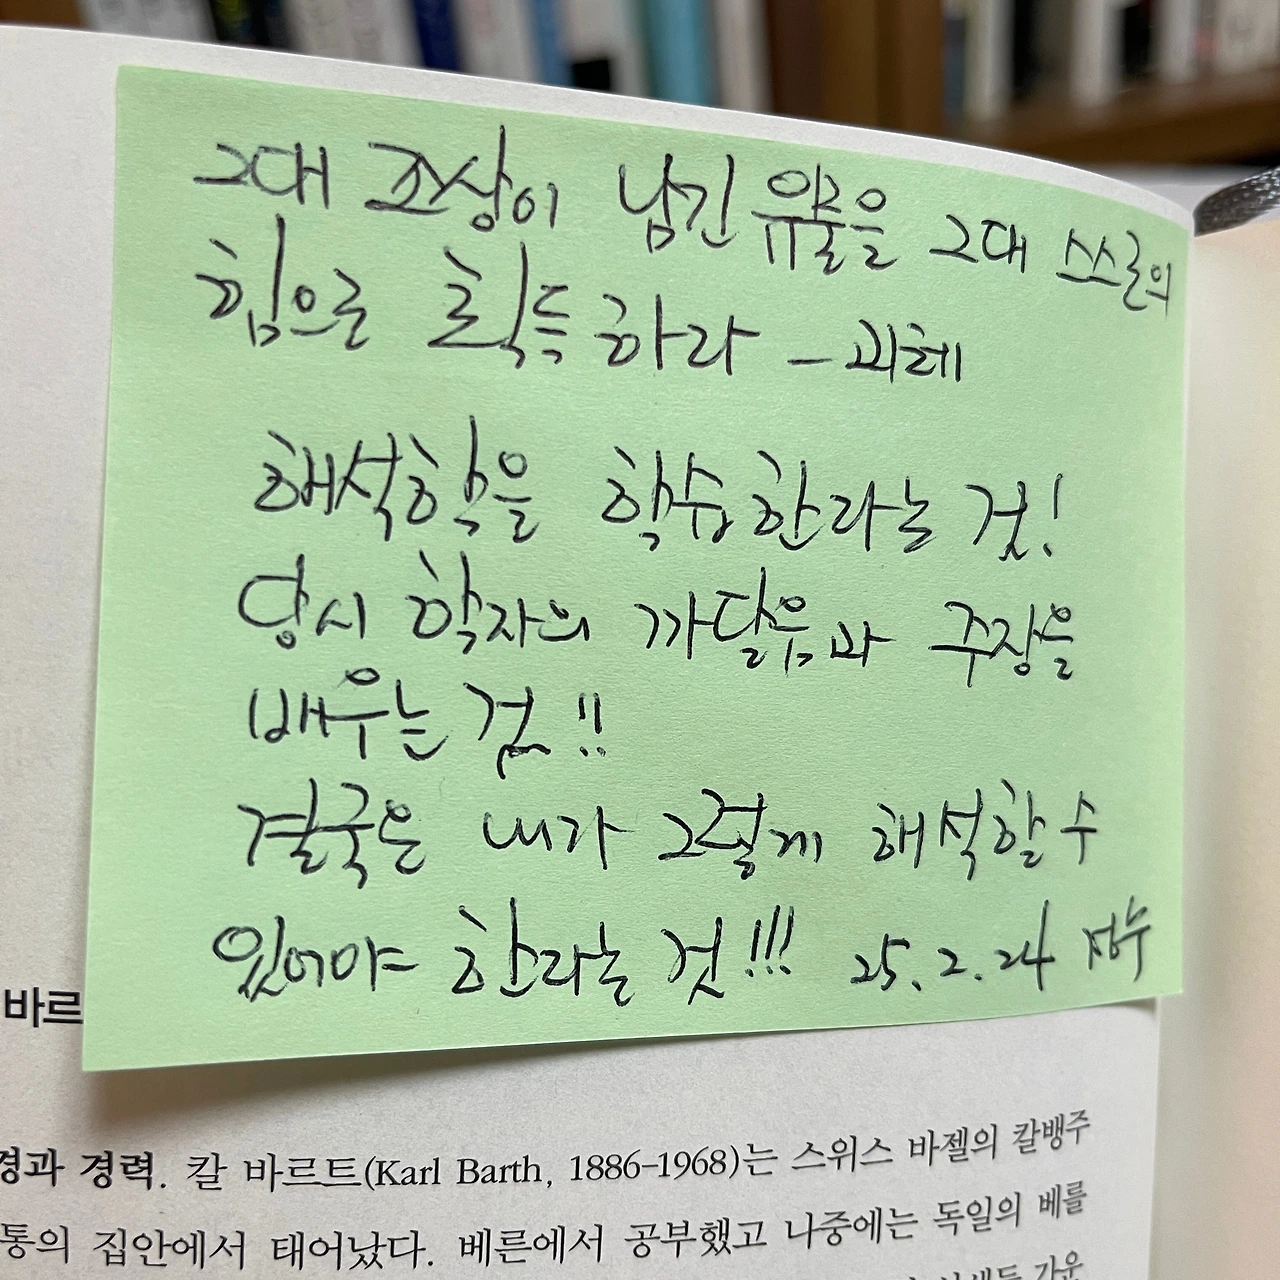 그대 조상이 남긴 유물을 그대 스스로의
힘으로 획득하라 - 괴테
해석학을 학습한라는 것!
당시 학자의 깨달음과 주장을
배우는 것!!
결국은 내가 그렇게 해석할 수
있어야 한라는 것!!! 25.2.24
바르
경과 경력. 칼 바르트(Karl Barth, 1886-1968)는 스위스 바젤의 칼뱅주
통의 집안에서 태어났다. 베른에서 공부했고 나중에는 독일의 베를
가운